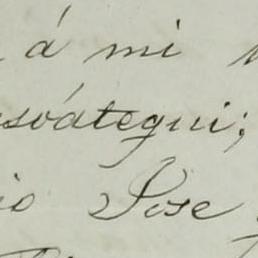 á mi
sválegui;
io Jose